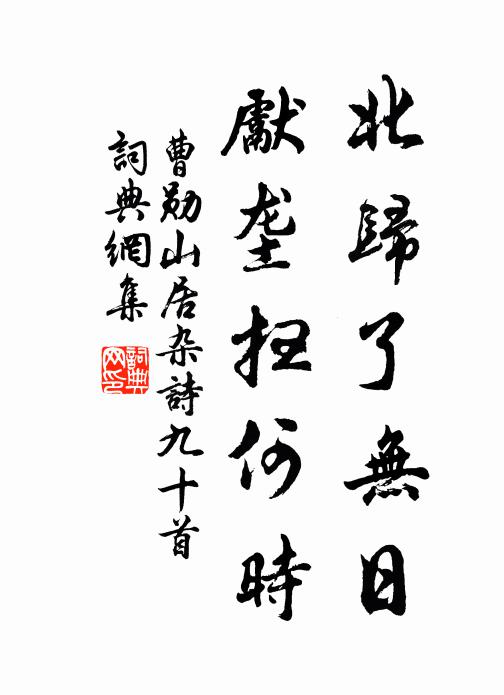 北歸了無日
獻垄何時
曹勋山居杂詩九十首
詞典網集
詞典
网印